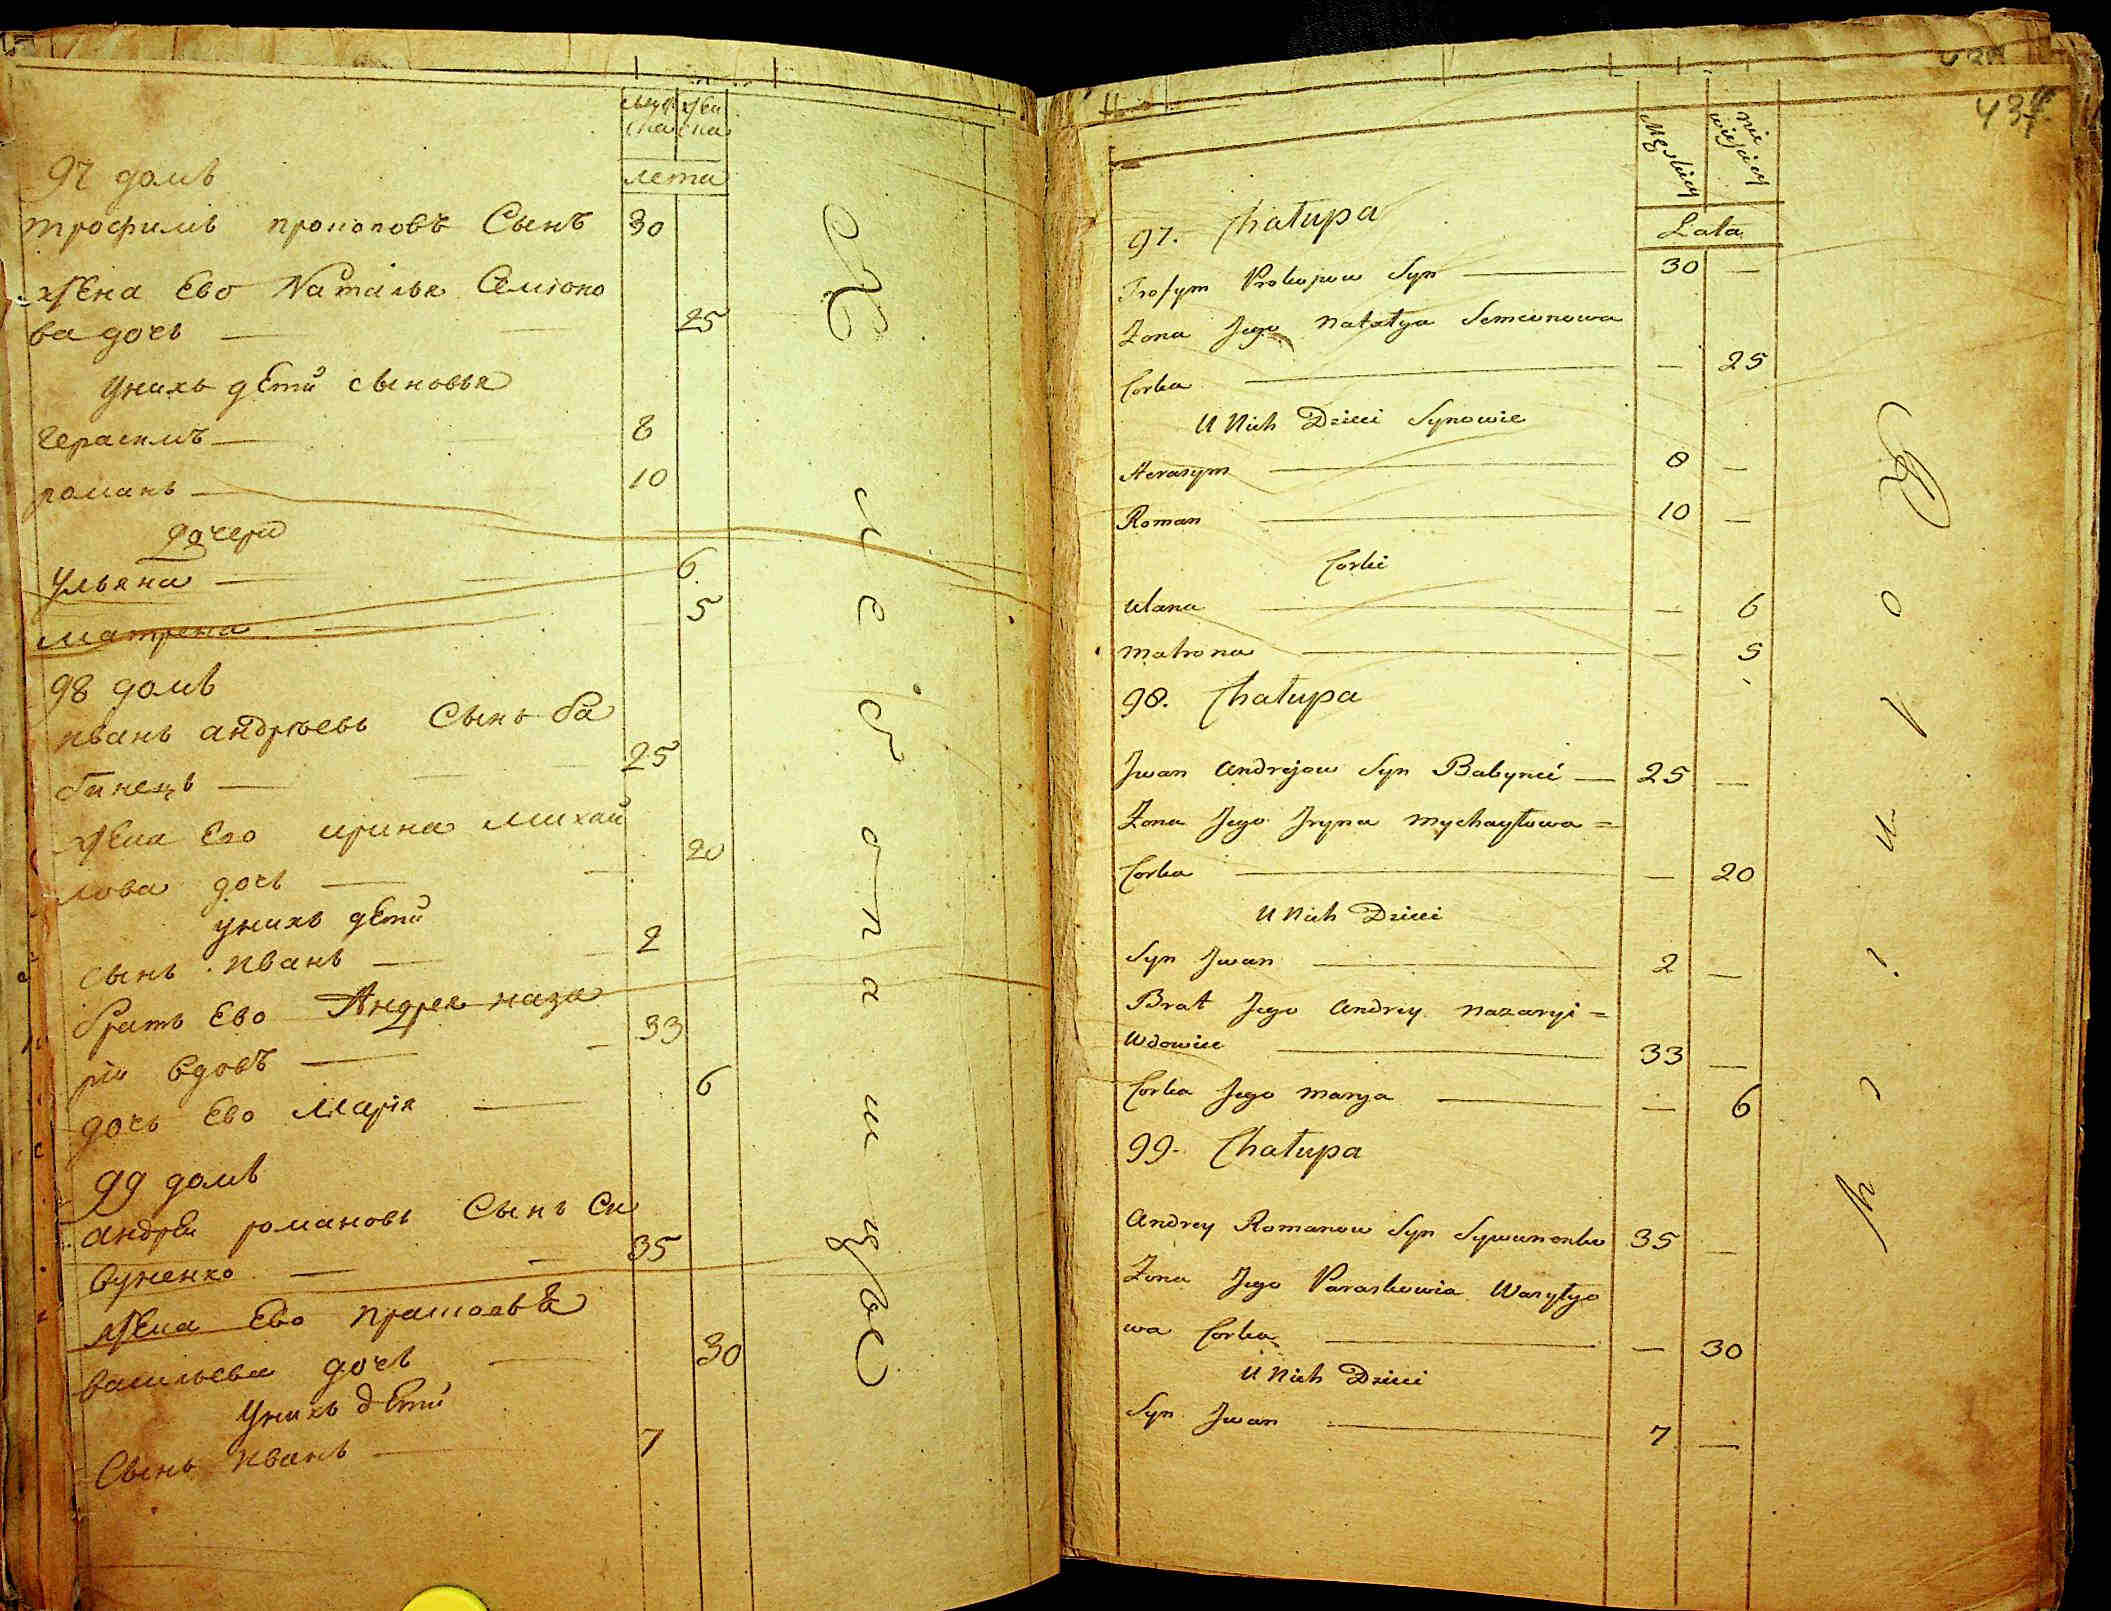 муж жен
ска ска
лета
97 домъ
трофимъ прокоповъ Сынъ 30
жЕна Ево Наталья Семiоно
ва дочь — 25
унихъ дЕти сыновья
герасимъ — 8
романъ — 10
дочери
ульяна — 6
матрена — 5
98 домъ
иванъ андрѣевъ Сынъ ба
бинецъ — 25
жЕна Его ирина михаи
лова дочь — 20
унихъ дЕти
сынъ иванъ — 2
братъ Ево Андрея наза
рiи вдовъ — 33
дочь Ево Марiя — 6
99 домъ
андрЕи романовъ Сынъ Си
вуненко — 35
жЕна Ево
васильева дочь — 30
унихъ дЕти
Сынъ иванъ — 7
437
Męskiey
nie
wieściey
Lata
97. Chałupa
Trofym Prokopow Syn — 30 —
Żona Jego Natalya Semeonowa
Corka — — 25
U Nich Dzieci Synowie
Herasym — 8 —
Roman — 10 —
Corki
Ulana — — 6
Matrona — — 5
98. Chałupa
Jwan Andrejow Syn Babyneć — 25 —
Żona Jego Jryna Mychayłowa =
Corka — — 20
U Nich Dzieci
Syn Jwan — 2 —
Brat Jego Andrey Nazaryi =
Wdowiec — 33 —
Corka Jego Marya — — 6
99. Chałupa
Andrey Romanow Syn Sywunenko 35 —
Żona Jego Paraskowia Wasyly
wa Corka — — 30
U Nich Dzieci
Syn Jwan — 7 —